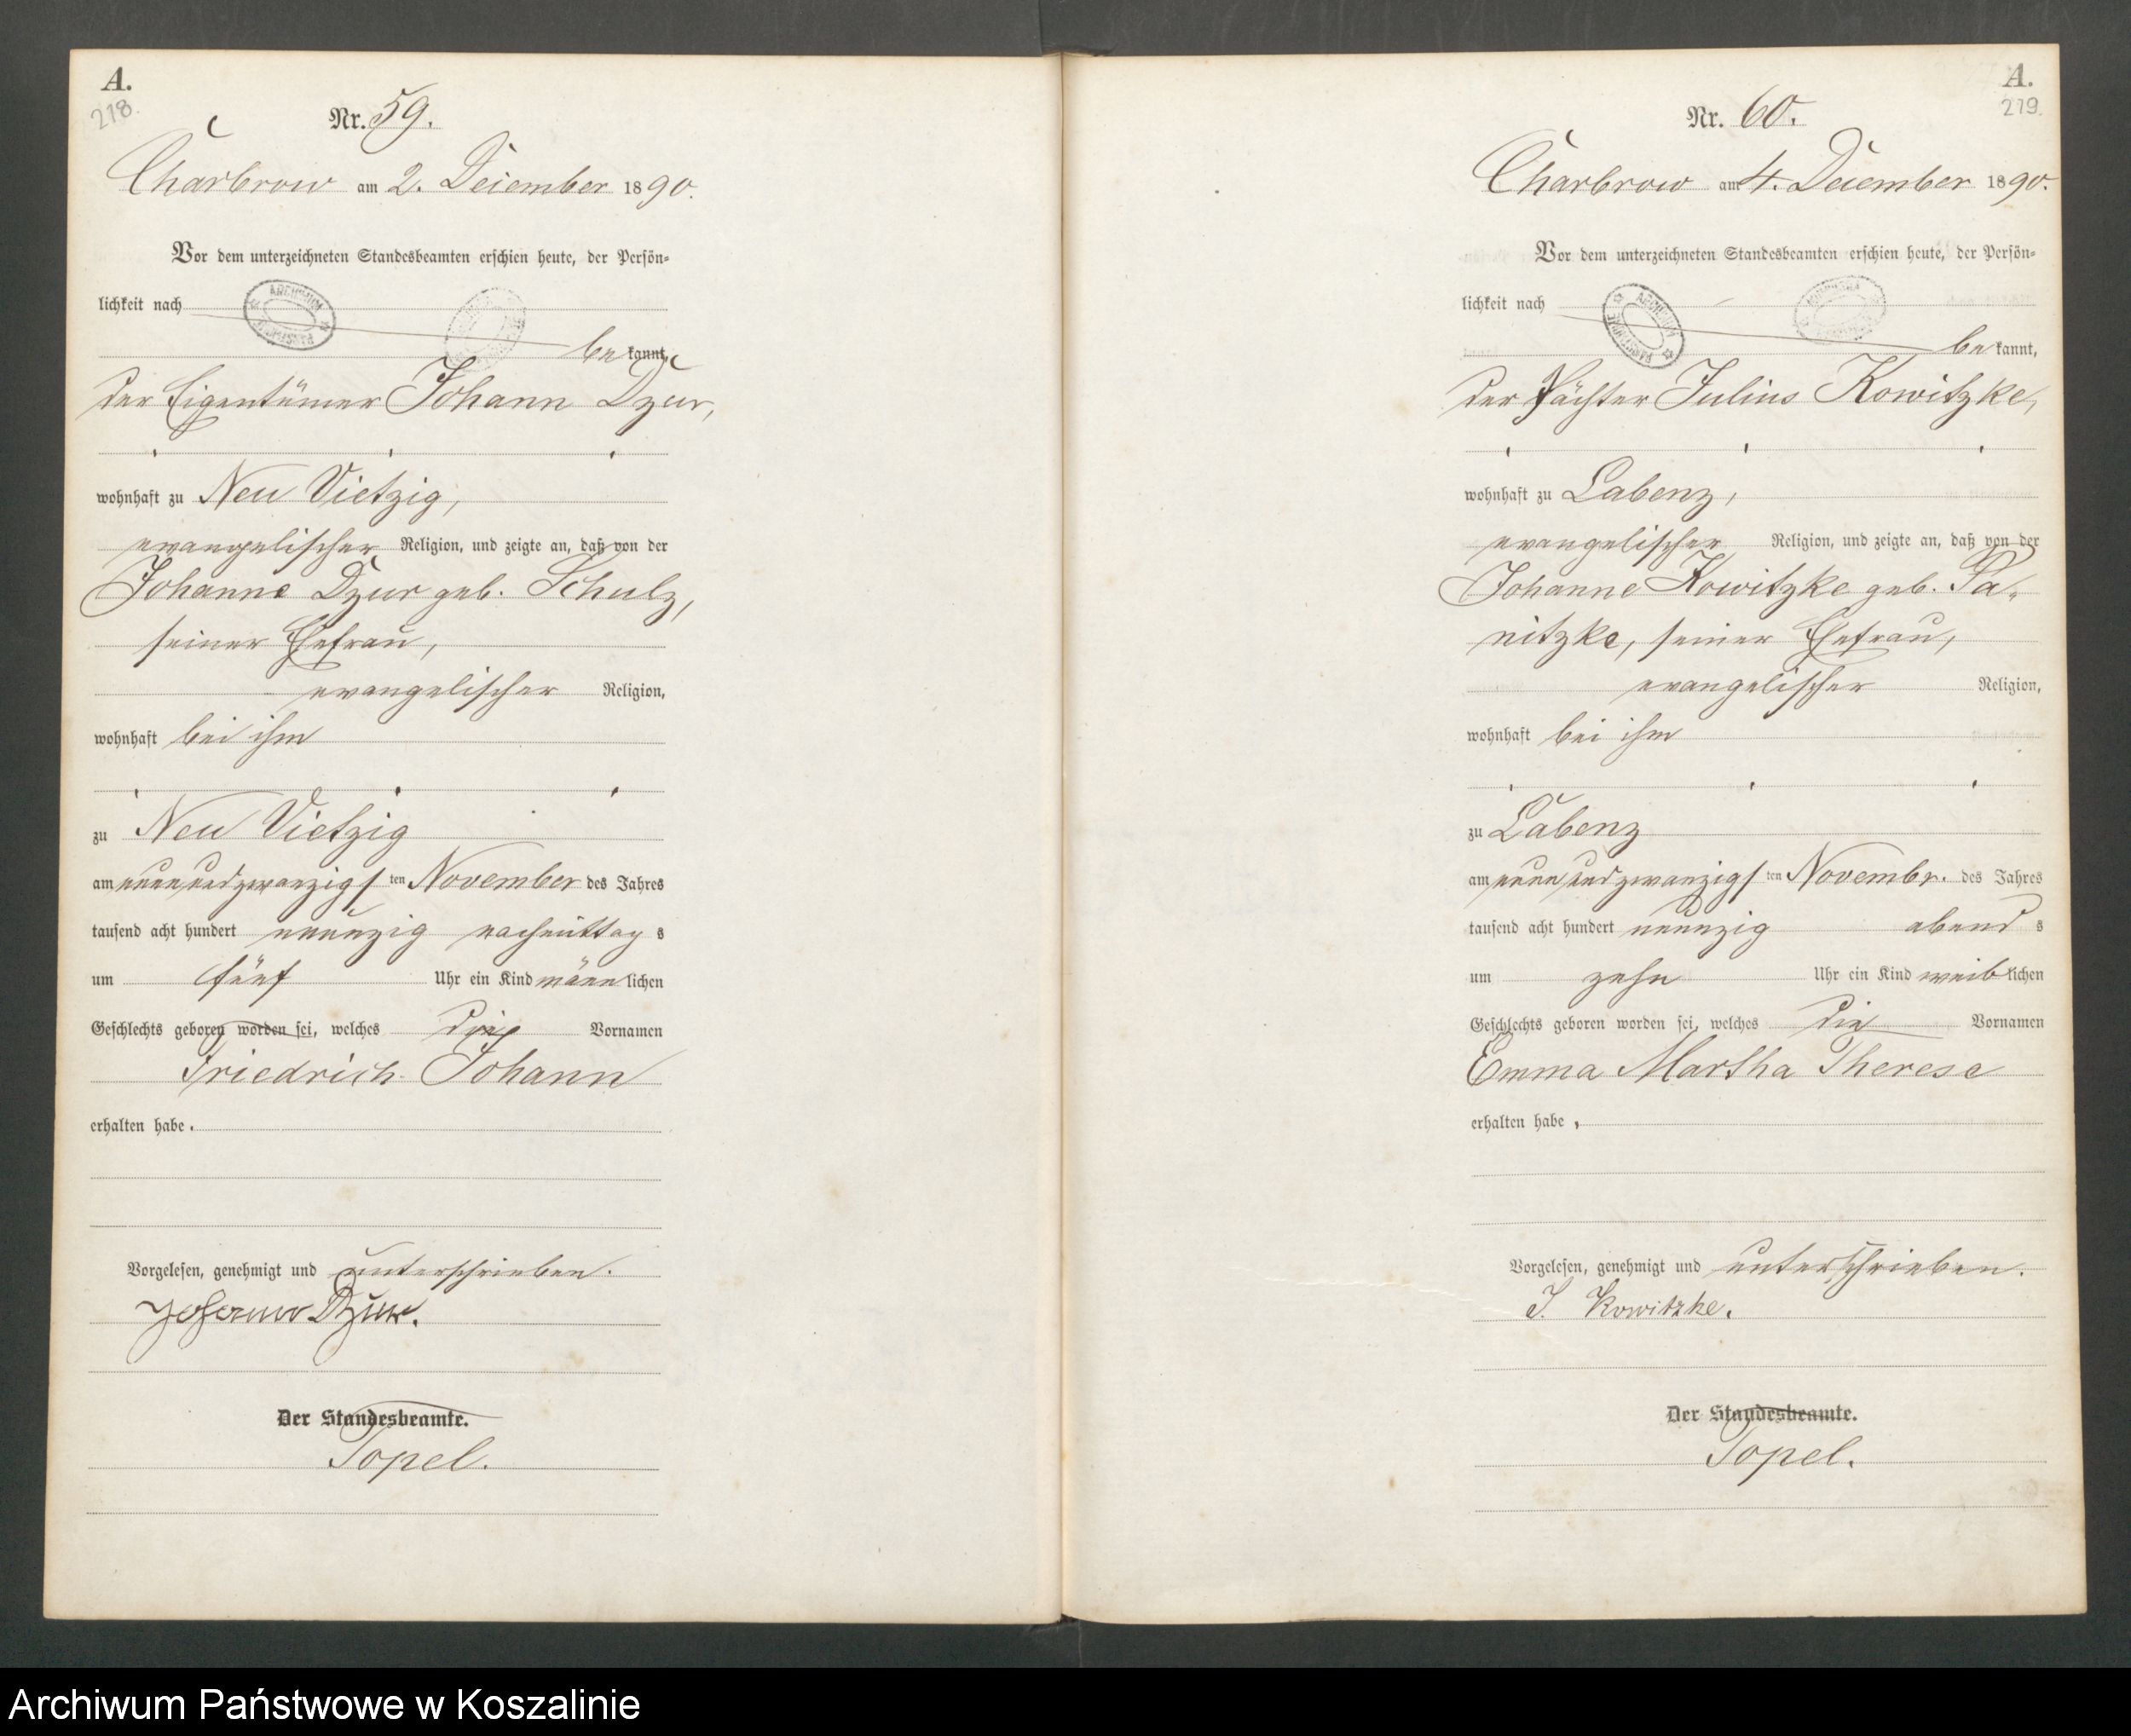 A.
218.
Nr. 59.
Charbrow am 2. Dezember 1890.
Vor dem unterzeichneten Standesbeamten erschien heute, der Persön-
lichkeit nach
ARCHIWUM PAŃSTWOWE
bekannt,
der Eigentümer Johann Dzur,
wohnhaft zu Neu Vietzig,
evangelischer Religion, und zeigte an, daß von der
Johanne Dzur geb. Schulz,
seiner Ehefrau,
evangelischer Religion,
wohnhaft bei ihm
zu Neu Vietzig
am neunundzwanzigsten November des Jahres
tausend acht hundert neunzig nachmittags
um fünf Uhr ein Kind männlichen
Geschlechts geboren worden sei, welches die Vornamen
Friedrich Johann
erhalten habe.
Vorgelesen, genehmigt und unterschrieben.
Johann Dzur.
Der Standesbeamte.
Topel.
A.
219.
Nr. 60.
Charbrow am 4. Dezember 1890.
Vor dem unterzeichneten Standesbeamten erschien heute, der Persön-
lichkeit nach
ARCHIWUM PAŃSTWOWE
bekannt,
der Pächter Julius Kowitzke,
wohnhaft zu Labenz,
evangelischer Religion, und zeigte an, daß von der
Johanne Kowitzke geb. Pa-
nitzke, seiner Ehefrau,
evangelischer Religion,
wohnhaft bei ihm
zu Labenz
am neunundzwanzigsten Novembr. des Jahres
tausend acht hundert neunzig abends
um zehn Uhr ein Kind weiblichen
Geschlechts geboren worden sei, welches die Vornamen
Emma Martha Therese
erhalten habe.
Vorgelesen, genehmigt und unterschrieben.
J. Kowitzke.
Der Standesbeamte.
Topel.
Archiwum Państwowe w Koszalinie